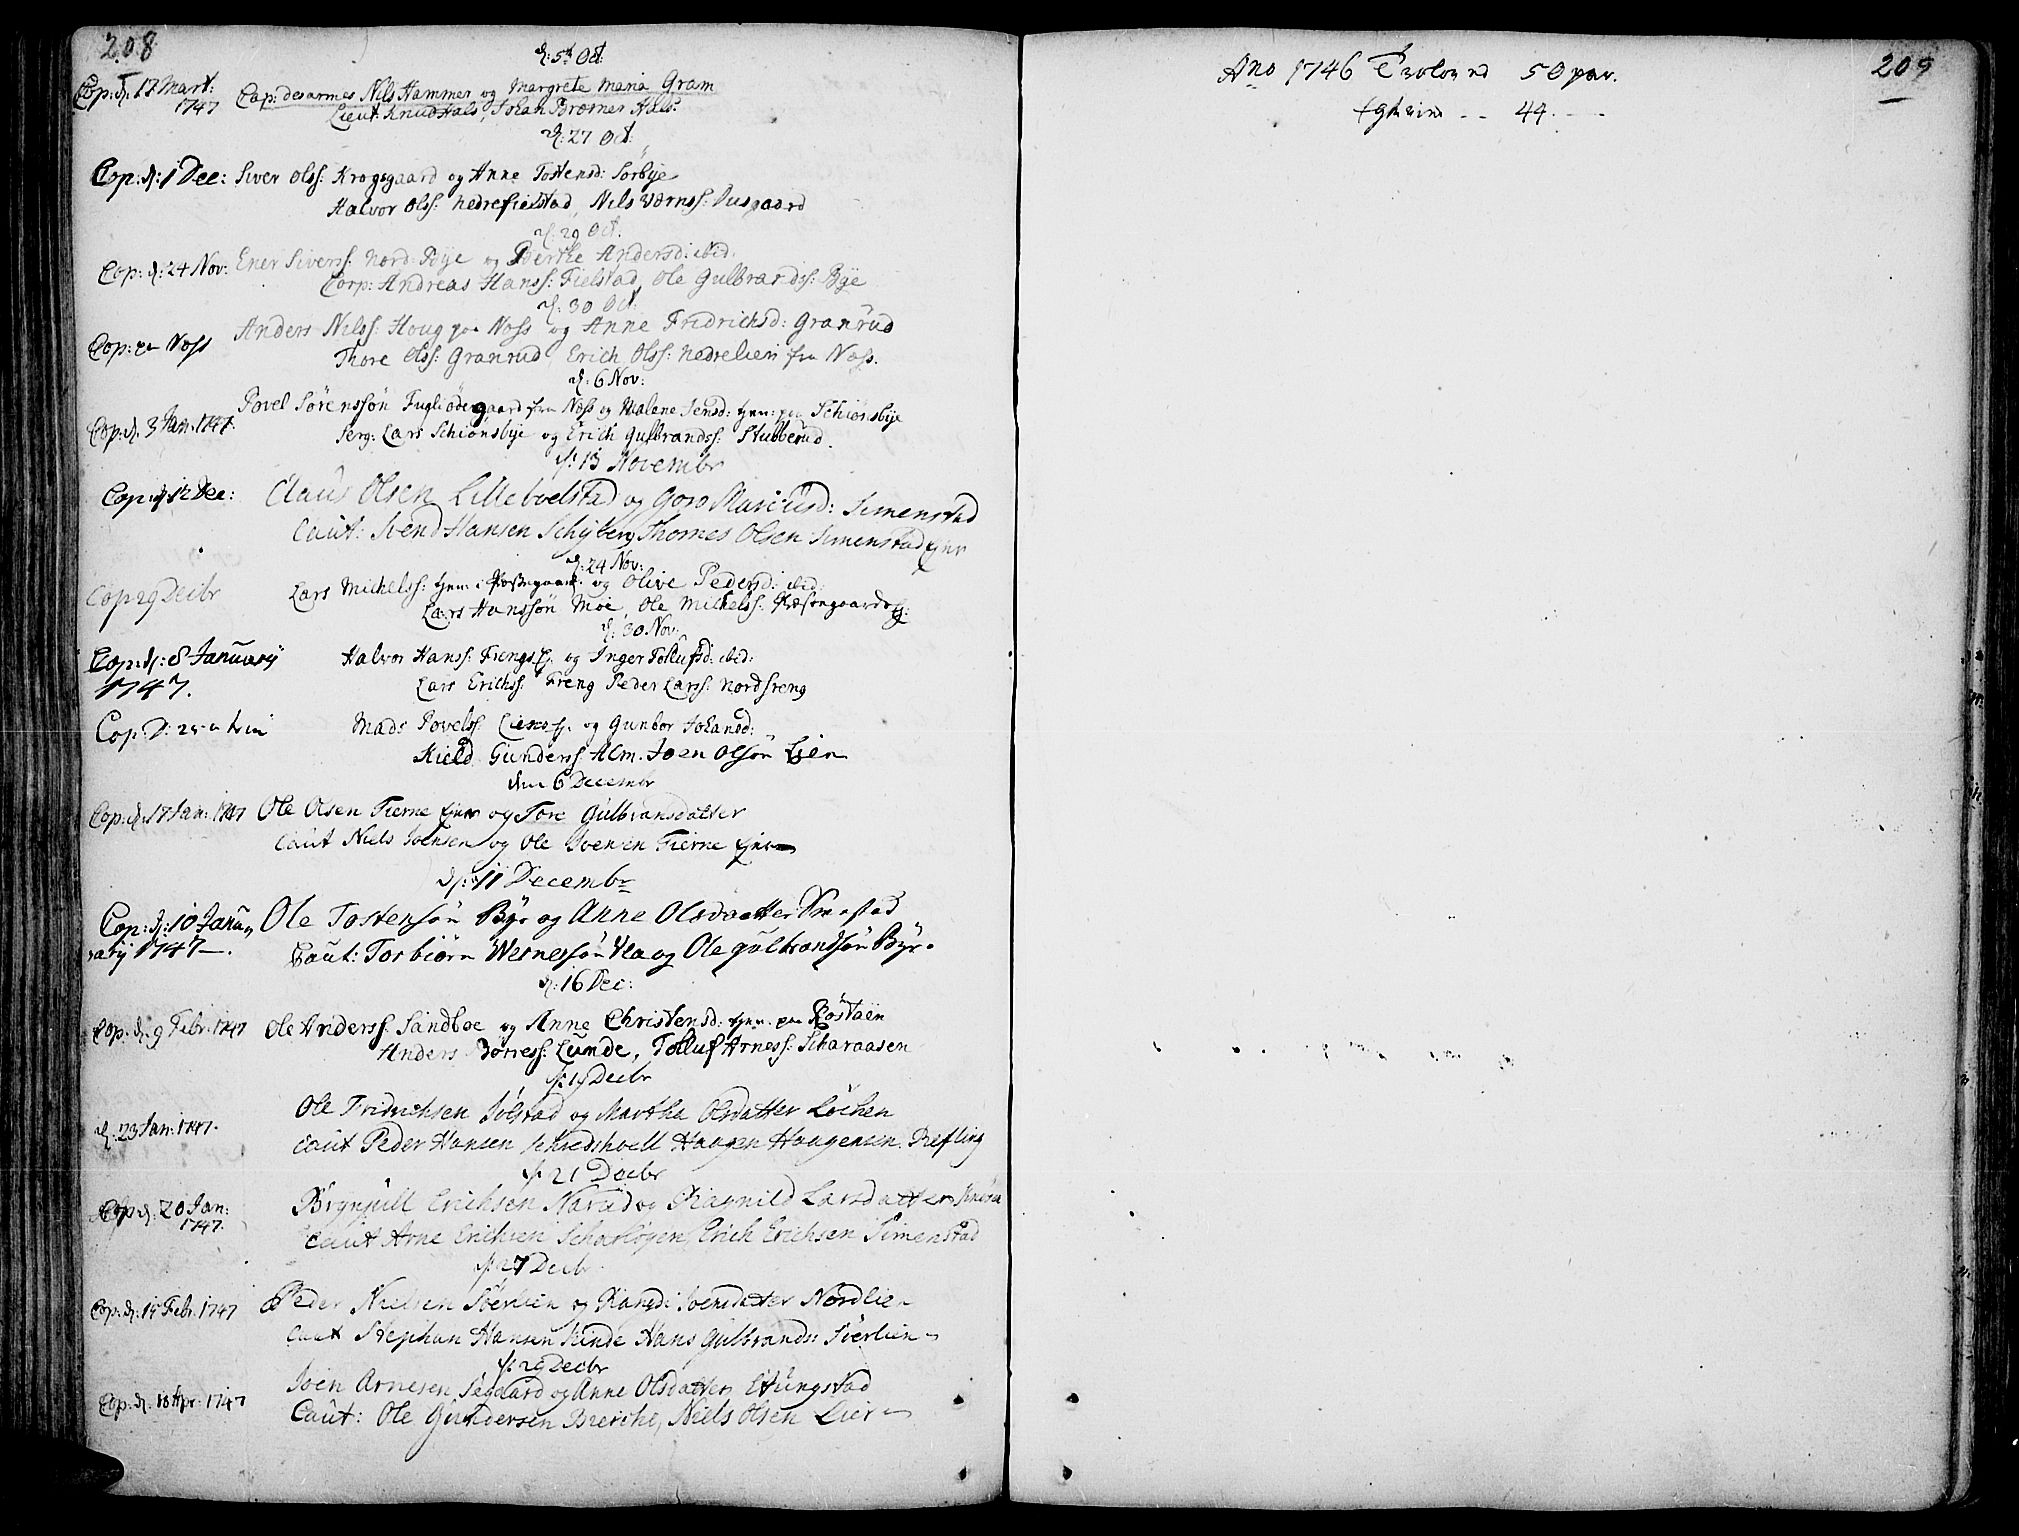 208
d: 5t Oct:
Cop: d. 17 Mart: 1747 Cap: des armes Nils Hammer og Margrete Maria Gram
Lieut: Knud Hals, Johan Bræmer Hals:
d: 27 Oct:
Cop: d: 1 Dec: Siver Olss: Krogsgaard og Anne Tostensd: Sörbye
Halvor Olss: nedrefielstad, Nils Værnss: Lusgaard
d: 29 Oct.
Cop: d: 24 Nov: Ener Siverss: Nord-Bye og Berthe Andersd: ibid.
Corp: Andreas Hanss: Fielstad, Ole Gulbrandss: Bye
d: 30 Oct:
Cop: paa Næss Anders Nilss: Houg paa Næss og Anne Fridrichsd: Granrud
Thore Olss: Granrud, Erich Olss: nedrelien fra Næss.
d: 6 Nov:
Cop: d. 3 Jan: 1747. Povel Sörenssön Fugliödegaard fra Næss og Malene Jensd: tjen: paa Schiönsbye
Serg: Lars Schiönsbye og Erich Gulbrandss: Stubberud.
d: 13 Novembr
Cop: d 12 Dec: Claus Olsen Lilleboelstad og Goro Marcusd: Simenstad
Caut: Svend Hansen Schÿberg Thomes Olsen Simenstad Ejer
d: 24 Nov:
Cop 29 Decbr Lars Michelss: tjen: i Præstegaard: og Olive Pedersd: ibid:
Lars Hanssön Moe, Ole Michelss: Præstegaards Ej:
d: 30. Nov.
Cop: d: 8 Januarij 1747. Halvor Hanss: Frengs Ej. og Inger Tollufsd: ibid:
Lars Erichss: Freng Peder Larss: Nordfreng
Cop: D: Mads Povelss: Liens Ej. og Gunbor Johansd:
Kield Gunderss Alm. Joen Olsön Lien
den 6 Decembr
Cop: d. 17 Jan: 1747 Ole Olsen Tierne Ejer og Tore Gulbransdatter
Caut Niels Joensen og Ole Joensen Tierne Ejer
d: 11 Decembr
Cop: d: 10 Januarij 1747. Ole Tostensön Bye og Anne Olsdaatter Smestad
Caut: Torbiörn Wernessön Vla og Ole gulbrandsön Bÿe.
d: 16 Dec:
Cop. d. 9 Febr. 1747 Ole Anderss. Sandboe og Anne Christensd: tjen. paa Röstaen
Anders Börress: Lunde, Tolluf Arness: Scharaasen
d: 19 Decbr
d. 23 Jan: 1747. Ole Fridrichsen Jölstad og Martha Olsdatter Löchen
Caut Peder Hansen Haagen Haagensen Refling
d: 21 Decbr
Cop d. 20 Jan: 1747. Brynjull Erichsen Narud og Ragnild Larsdatter
Caut Arne Erichsen Scharlögen, Erich Erichsen Simenstad
d: 27 Decbr
Cop. d. 15 Febr. 1747 Peder Nielsen Söerlien og Randi Joensdatter Nordlie
Caut Stephan Hansen Hans Gulbrands: Söerlien
d: 29 Decbr
Cop. d. 18 Apr: 1747 Joen Arnesen Segaard og Anne Olsdatter Stungstad
Caut: Ole Gundersen Bierche, Niels Olsen Lier
209
Ano 1746 Trolov.d 50 par.
Egtevied -- 44.